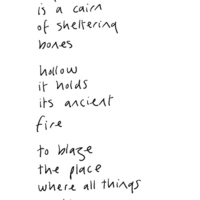 is a cairn
of sheltering
bones
hollow
it holds
its ancient
fire
to blaze
the place
where all things